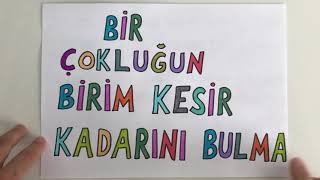 BİR
ÇOKLUĞUN
BİRİM KESİR
KADARINI BULMA